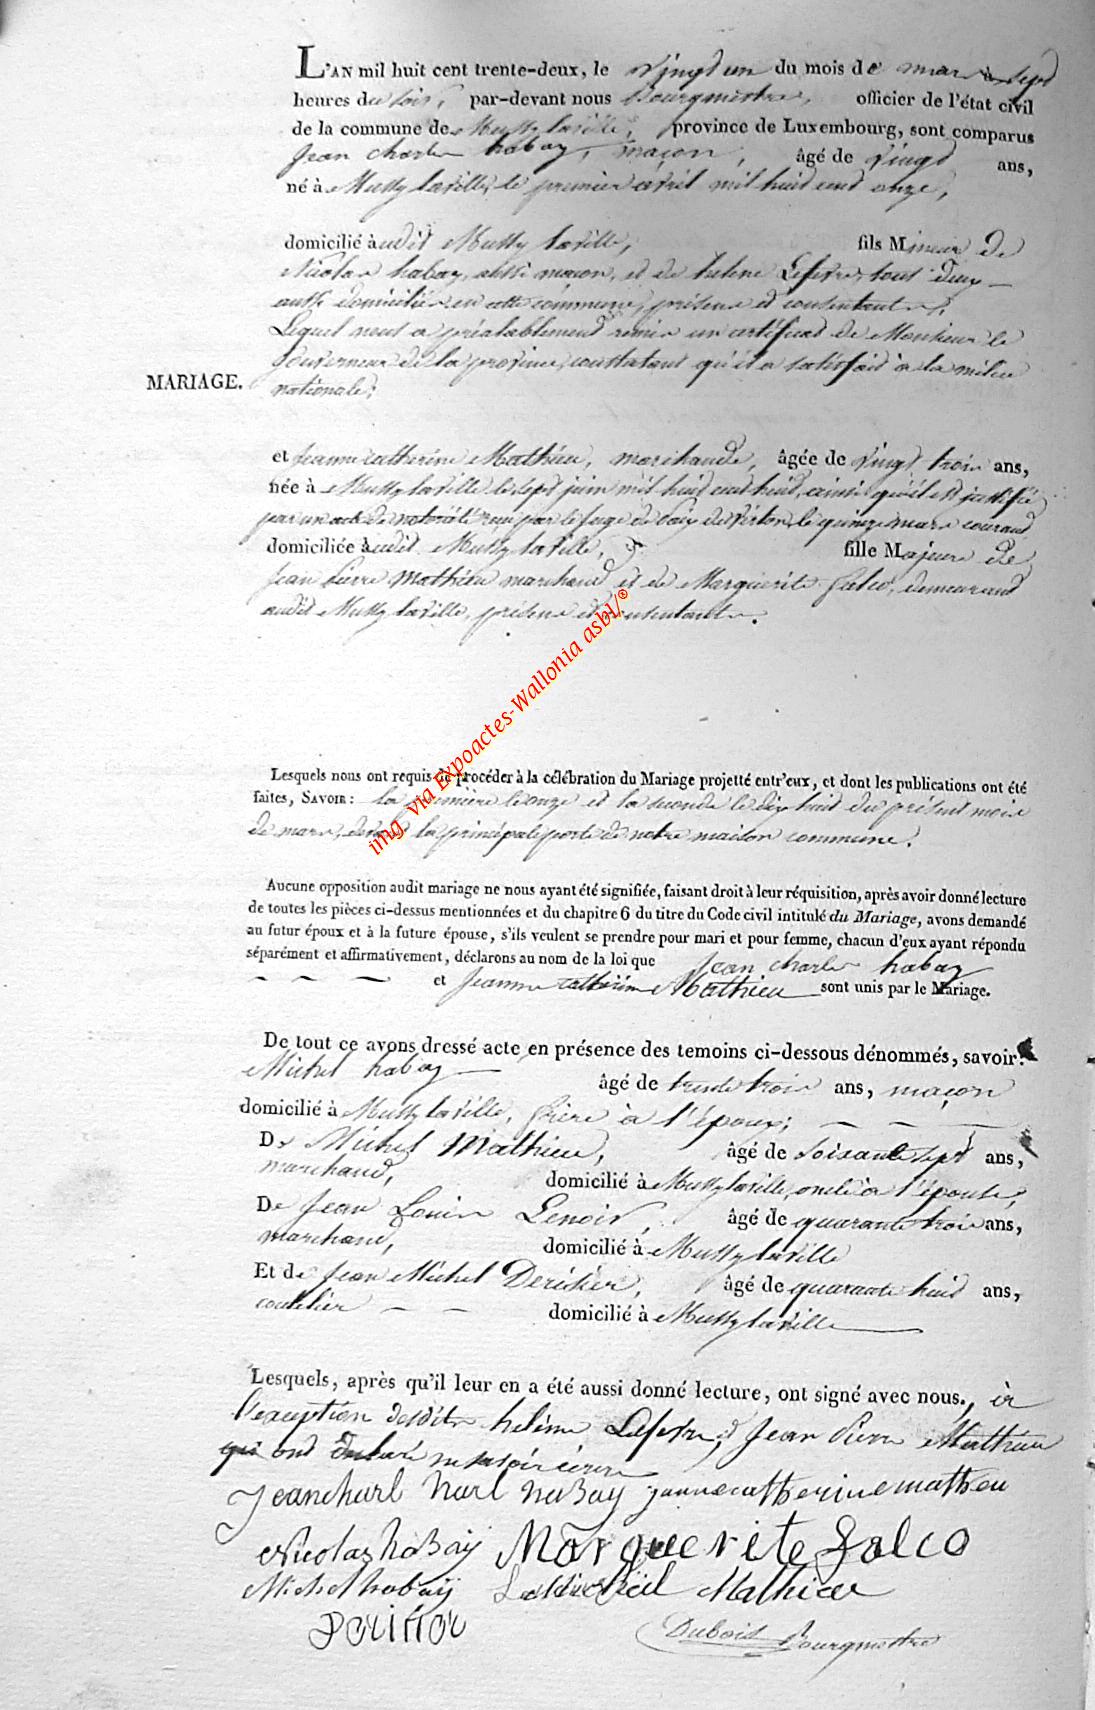 L'AN mil huit cent trente-deux, le vingt un du mois de mars à sept
heures du soir, par-devant nous Bourgmestre, officier de l'état civil
de la commune de Mussy laville, province de Luxembourg, sont comparus
Jean Charles habay, maçon, âgé de vingt ans,
né à Mussy laville, le premier avril mil huit cent onze,
domicilié audit Mussy laville, fils Mineur de
Nicolas habay, aussi maçon, et de helene Lefevre, tous deux
aussi domiciliés en cette commune, présens et consentants;
Lequel nous a préalablement remis un certificat de Monsieur le
Gouverneur de la province, constatant qu'il a satisfait à la milice
MARIAGE. nationale;
et Jeanne catherine Mathieu, marchande, âgée de vingt trois ans,
née à Mussy laville le sept juin mil huit cent huit, ainsi qu'il est justifié
par un acte de notoriété reçu par le juge de Paix de Virton, le quinze mars courant
domiciliée audit Mussy laville, fille Majeure de
Jean Pierre Mathieu marchand et de Marguerite Galco, demeurant
audit Mussy laville, présens et consentants.
img. via Expoactes-Wallonia asbl/®
Lesquels nous ont requis de procéder à la célébration du Mariage projetté entr'eux, et dont les publications ont été
faites, SAVOIR: la première le onze et la seconde le dix huit du présent mois
de mars, devant la principale porte de notre maison commune.
Aucune opposition audit mariage ne nous ayant été signifiée, faisant droit à leur réquisition, après avoir donné lecture
de toutes les pièces ci-dessus mentionnées et du chapitre 6 du titre du Code civil intitulé du Mariage, avons demandé
au futur époux et à la future épouse, s'ils veulent se prendre pour mari et pour femme, chacun d'eux ayant répondu
séparément et affirmativement, déclarons au nom de la loi que Jean Charles habay
et Jeanne catherine Mathieu sont unis par le Mariage.
De tout ce avons dressé acte en présence des temoins ci-dessous dénommés, savoir:
Michel habay âgé de trente trois ans, maçon
domicilié à Mussy laville, frère à l'époux;
De Michel Mathieu, âgé de soixante sept ans,
marchand, domicilié à Mussy laville, oncle à l'épouse;
De Jean Louis Lenoir, âgé de quarante trois ans,
marchand, domicilié à Mussy laville
Et de Jean Michel Derisier, âgé de quarante huit ans,
coutelier domicilié à Mussy laville
Lesquels, après qu'il leur en a été aussi donné lecture, ont signé avec nous, à
l'exception desdits helène Lefevre, et Jean Pierre Mathieu
qui ont déclaré ne savoir écrire
Jeancharl harl habay jannecatherine matheu
Nicolas habay Marguerite Galco
Michel habay Mathieu
Dubois Bourgmestre